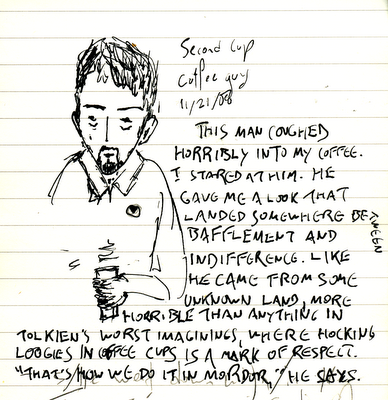 Second Cup
Coffee guy
11/21/08
THIS MAN COUGHED
HORRIBLY INTO MY COFFEE.
I STARED AT HIM. HE
GAVE ME A LOOK THAT
LANDED SOMEWHERE BETWEEN
BAFFLEMENT AND
INDIFFERENCE. LIKE
HE CAME FROM SOME
UNKNOWN LAND, MORE
HORRIBLE THAN ANYTHING IN
TOLKIEN'S WORST IMAGININGS, WHERE HOCKING
LOOGIES IN COFFEE CUPS IS A MARK OF RESPECT.
"THAT'S HOW WE DO IT IN MORDOR," HE SAYS.